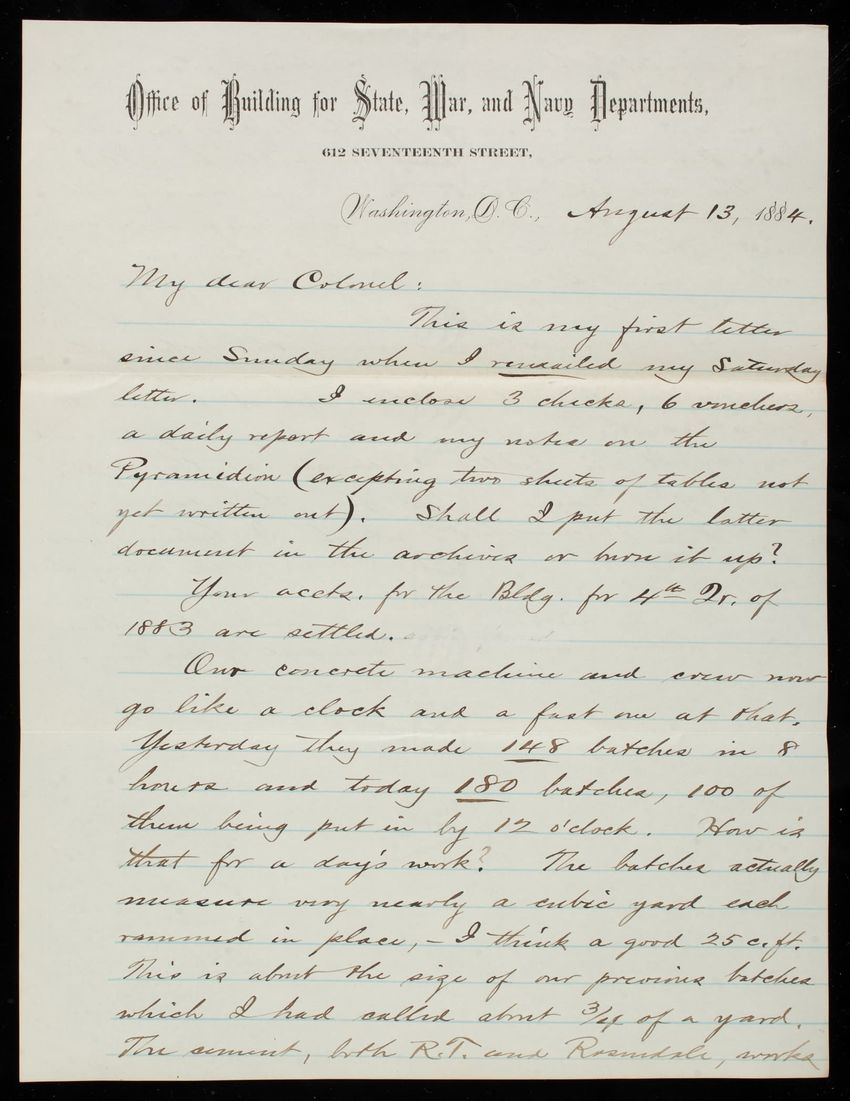 Office of Building for State, War, and Navy Departments,
612 SEVENTEENTH STREET,
Washington, D. C., August 13, 1884.
My dear Colonel:
This is my first letter
since Sunday when I remailed my Saturday
letter. I enclose 3 checks, 6 vouchers,
a daily report and my notes on the
Pyramidion (excepting two sheets of tables not
yet written out). Shall I put the latter
document in the archives or burn it up?
Your accts. for the Bldg. for 4th Qr. of
1883 are settled.
Our concrete machine and crew now
go like a clock and a fast one at that.
Yesterday they made 148 batches in 8
hours and today 180 batches, 100 of
them being put in by 12 o'clock. How is
that for a day's work? The batches actually
measure very nearly a cubic yard each
rammed in place, - I think a good 25 c. ft.
This is about the size of our previous batches
which I had called about 3/4 of a yard.
The cement, both R.T. and Rosendale, works